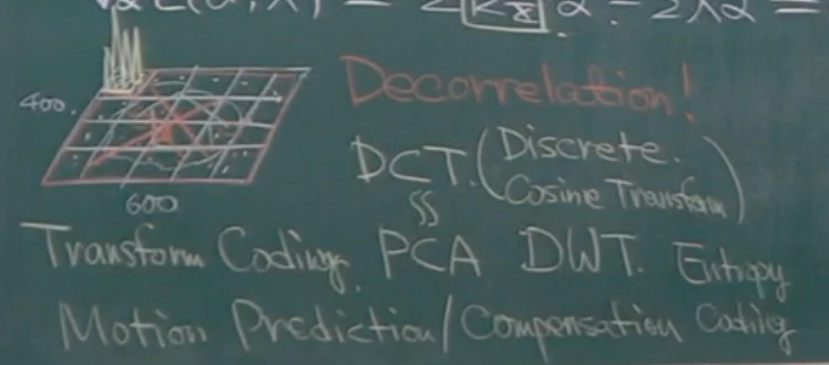 Decorrelation!
400.
DCT. (Discrete. Cosine Transform)
600
SS
Transform Coding, PCA DWT. Entropy
Motion Prediction/Compensation Coding